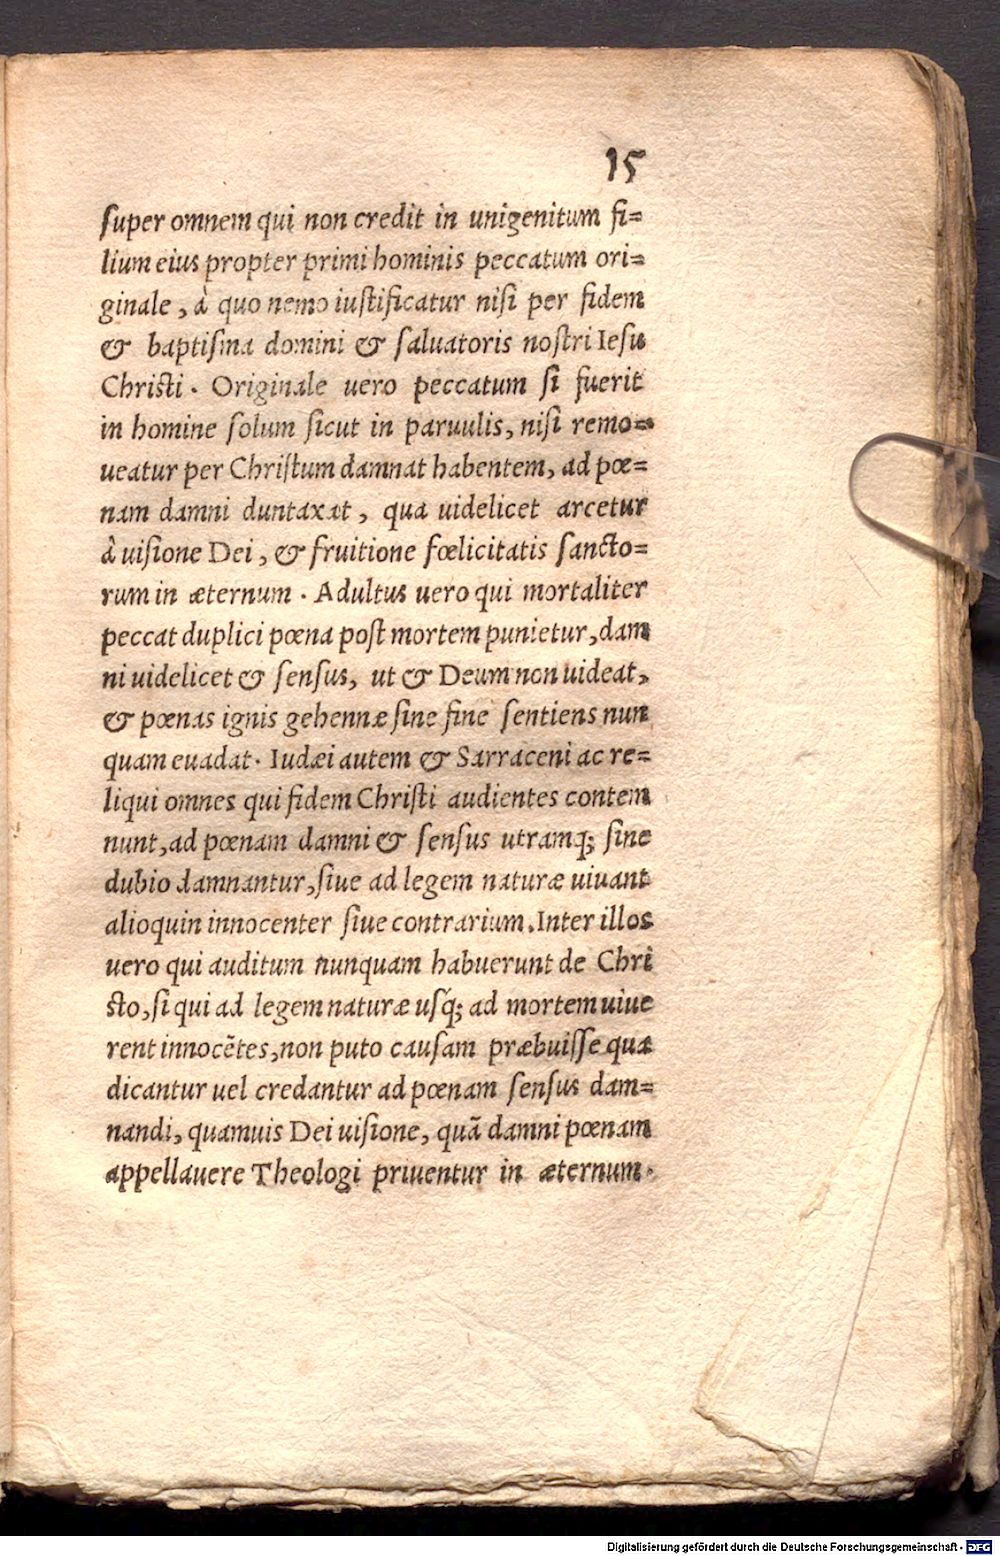 15
super omnem qui non credit in unigenitum fi=
lium eius propter primi hominis peccatum ori=
ginale, à quo nemo iustificatur nisi per fidem
& baptisma domini & saluatoris nostri Iesu
Christi. Originale uero peccatum si fuerit
in homine solum sicut in paruulis, nisi remo=
ueatur per Christum damnat habentem, ad pœ=
nam damni duntaxat, qua uidelicet arcetur
à uisione Dei, & fruitione fœlicitatis sancto=
rum in æternum. Adultus uero qui mortaliter
peccat duplici pœna post mortem punietur, dam
ni uidelicet & sensus, ut & Deum non uideat,
& pœnas ignis gehennæ sine fine sentiens nun
quam euadat. Iudæi autem & Sarraceni ac re=
liqui omnes qui fidem Christi audientes contem
nunt, ad pœnam damni & sensus utramq; sine
dubio damnantur, siue ad legem naturæ uiuant
alioquin innocenter siue contrarium. Inter illos
uero qui auditum nunquam habuerunt de Chri
sto, si qui ad legem naturæ usq́; ad mortem uiue
rent innocẽtes, non puto causam præbuisse quæ
dicantur uel credantur ad pœnam sensus dam=
nandi, quamuis Dei uisione, quã damni pœnam
appellauere Theologi priuentur in æternum.
Digitalisierung gefördert durch die Deutsche Forschungsgemeinschaft - DFG